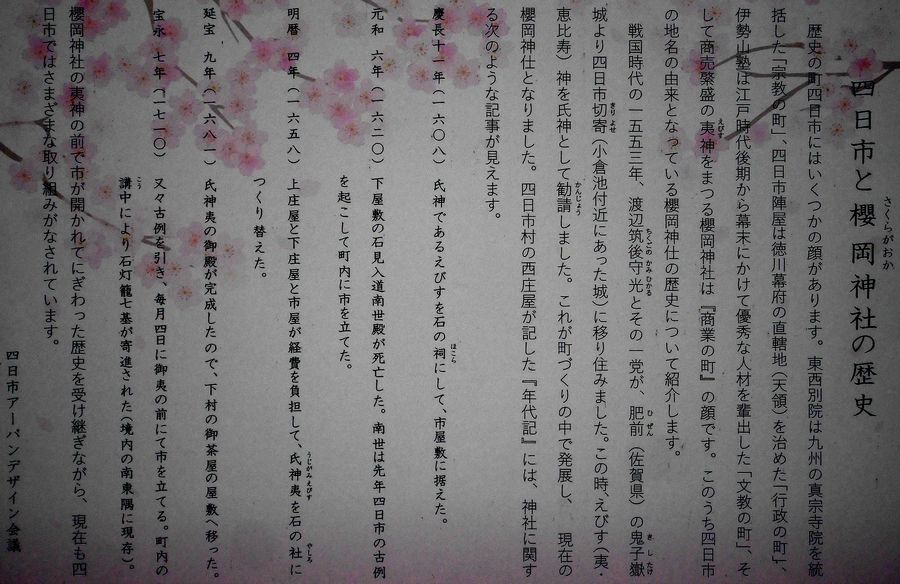 四日市と櫻岡神社の歴史
歴史の町四日市にはいくつかの顔があります。東西別院は九州の真宗寺院を統
括した「宗教の町」、四日市陣屋は徳川幕府の直轄地(天領)を治めた「行政の町」、
伊勢山塾は江戸時代後期から幕末にかけて優秀な人材を輩出した「文教の町」、そ
して商売繁盛の夷神をまつる櫻岡神社は『商業の町』の顔です。このうち四日市
の地名の由来となっている櫻岡神仕の歴史について紹介します。
戦国時代の一五五三年、渡辺筑後守光とその一党が、肥前(佐賀県)の鬼子嶽
城より四日市切寄(小倉池付近にあった城)に移り住みました。この時、えびす(夷・
恵比寿)神を氏神として勧請しました。これが町づくりの中で発展し、現在の
櫻岡神仕となりました。四日市村の西庄屋が記した『年代記』には、神社に関す
る次のような記事が見えます。
慶長十一年(一六〇八)氏神であるえびすを石の祠にして、市屋敷に据えた。
元和六年(一六二〇)下屋敷の石見入道南世殿が死亡した。南世は先年四日市の古例
を起こして町内に市を立てた。
明暦四年(一六五八)上庄屋と下庄屋と市屋が経費を負担して、氏神夷を石の社に
つくり替えた。
延宝九年(一六八一)氏神夷の御殿が完成したので、下村の御茶屋の屋敷へ移った。
宝永七年(一七一〇)又々古例を引き、毎月四日に御夷の前にて市を立てる。町内の
講中により石灯籠七基が寄進された(境内の南東隅に現存)。
櫻岡神社の夷神の前で市が開かれてにぎわった歴史を受け継ぎながら、現在も四
日市ではさまざまな取り組みがなされています。
四日市アーバンデザイン会議